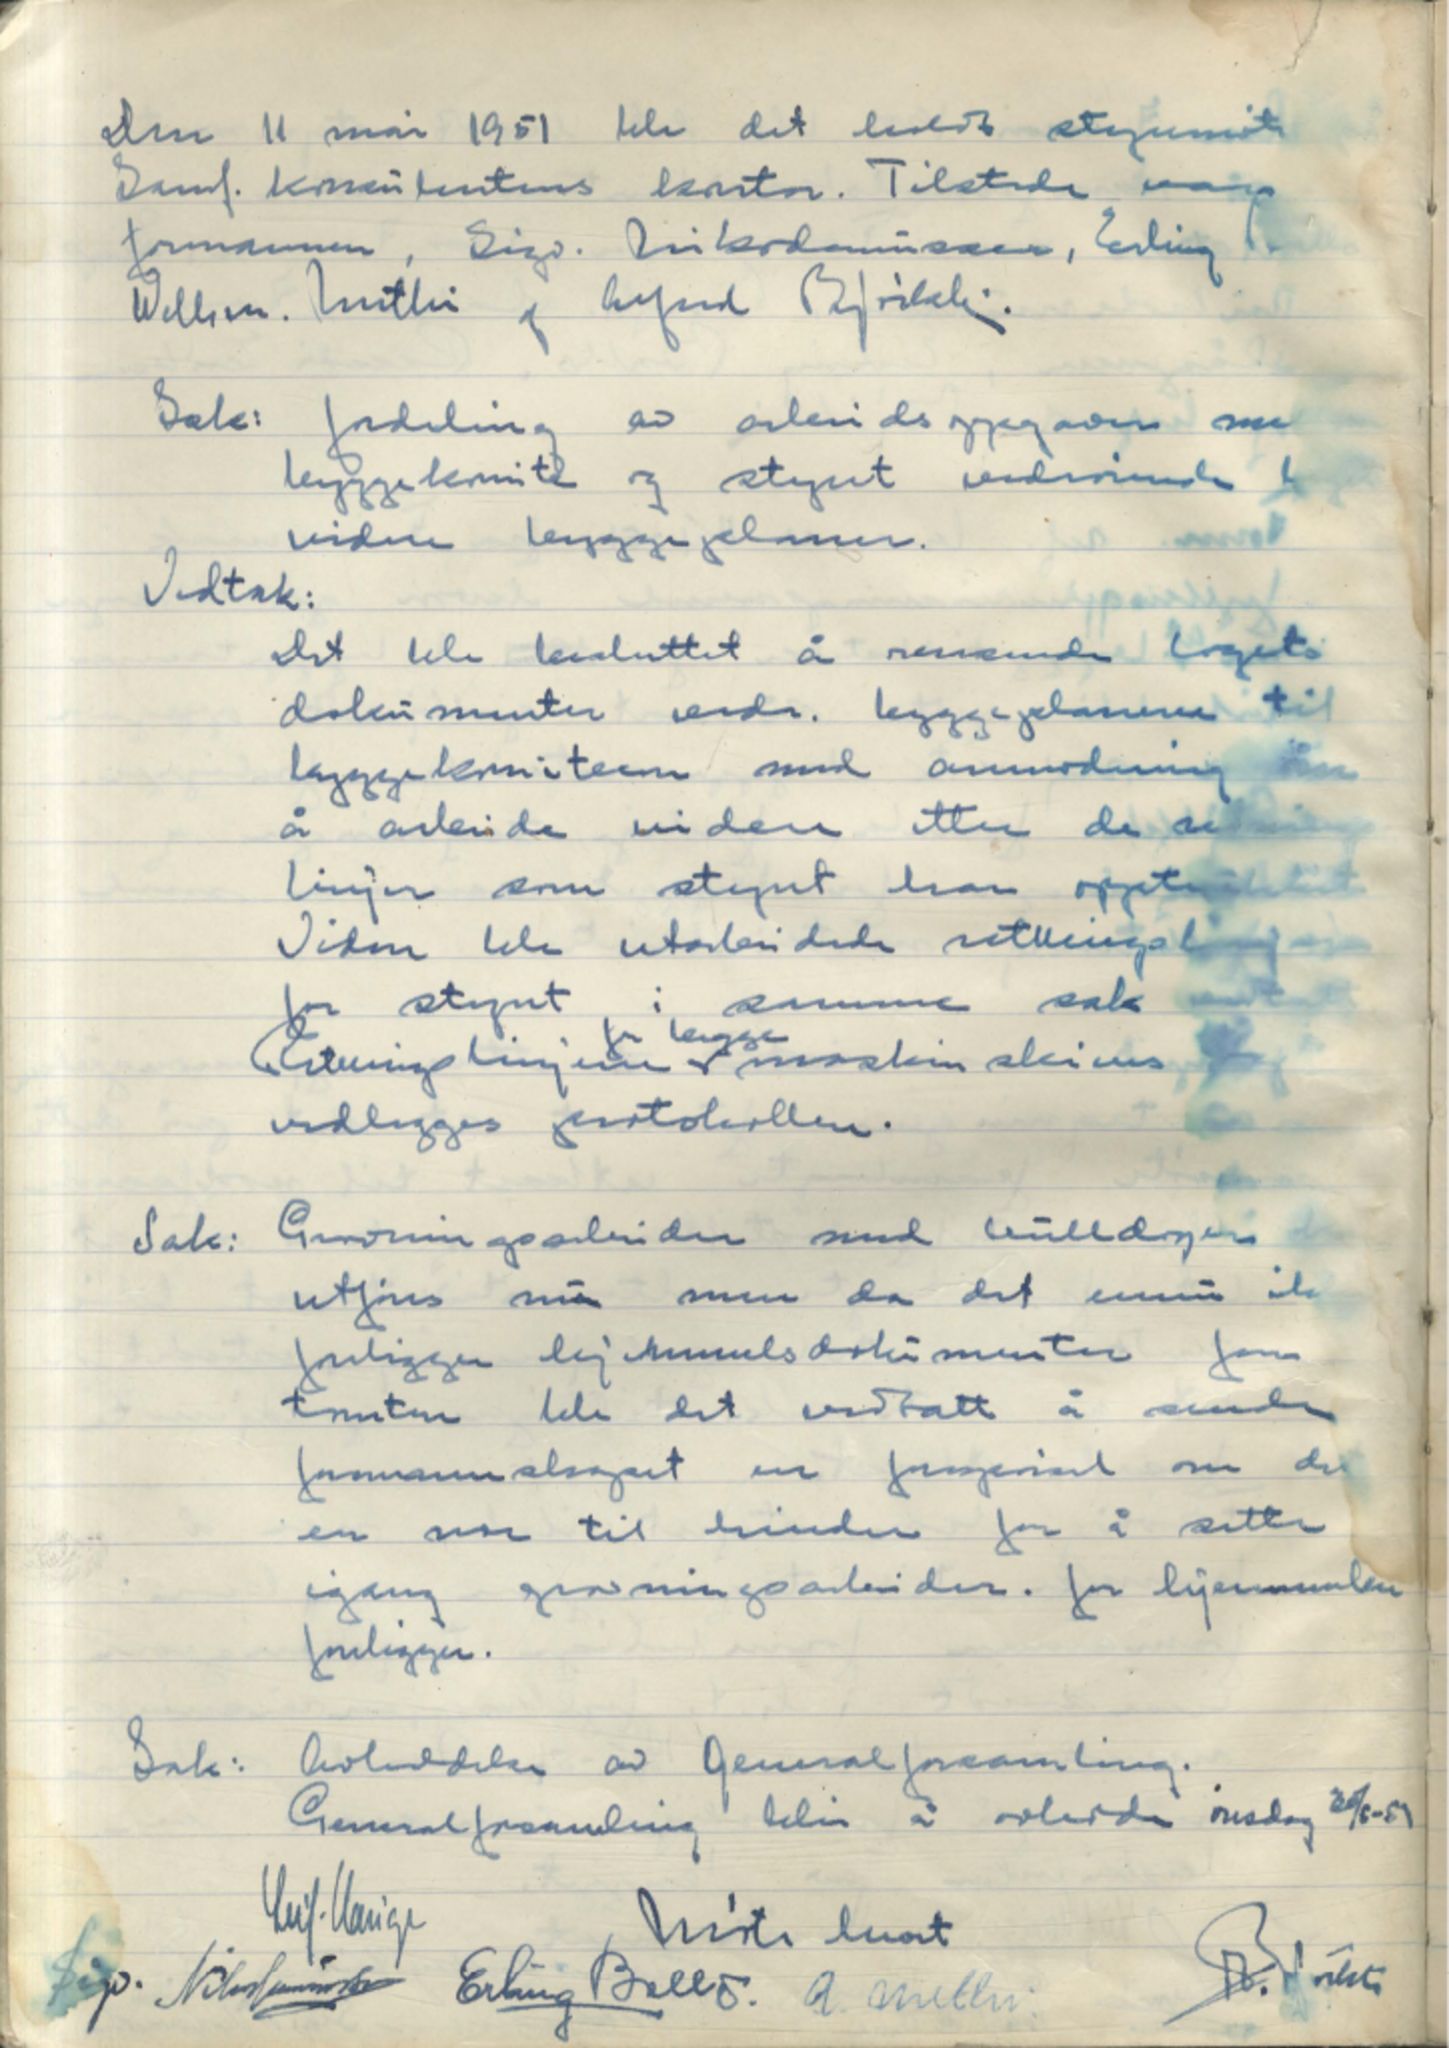 Den 11 mai 1951 ble det holdt styremöte
Samf. konsulentens kontor. Tilstede var
formannen, Sigv. Nikodemussen, Erling
og Alfred
Sak: fordeling av arbeidsoppgaver
byggekomite og styret vedrörende
videre byggeplaner.
Vedtak:
Det ble besluttet å lagets
dokumenter vedr. byggeplanene til
byggekomiteen med anmodning om
å arbeide videre etter de
linjer som styret har
Videre ble utarbeidede
for styret i samme sak
for bygge
Retningslinjene maskinskrives
vedlegges protokollen.
Sak: Gravningsarbeider med bulldozer
utföres nå men da det ennu
foreligger hjemmelsdokumenter for
tomten ble det vedtatt å sende
formannskapet en forespörsel om det
er noe til hinder for å sette
igang gravningsarbeider. för hjemmelen
foreligger.
Sak: Avholdelse av Generalforsamling.
Generalforsamling blir å avholde onsdag
Möte hevet
Sigv. Nikodemussen Erling Ballo.